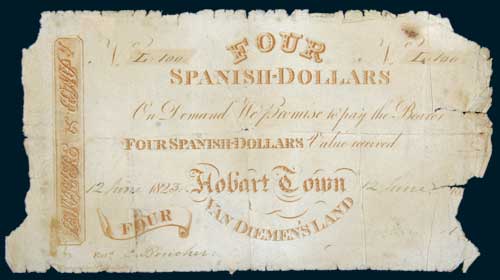 FOUR
N L 100 L 100
SPANISH-DOLLARS
On Demand We Promise to pay the Bearer
FOUR SPANISH-DOLLARS Value received
12 June 1823 Hobart Town 12 June
VAN DIEMEN'S LAND
FOUR